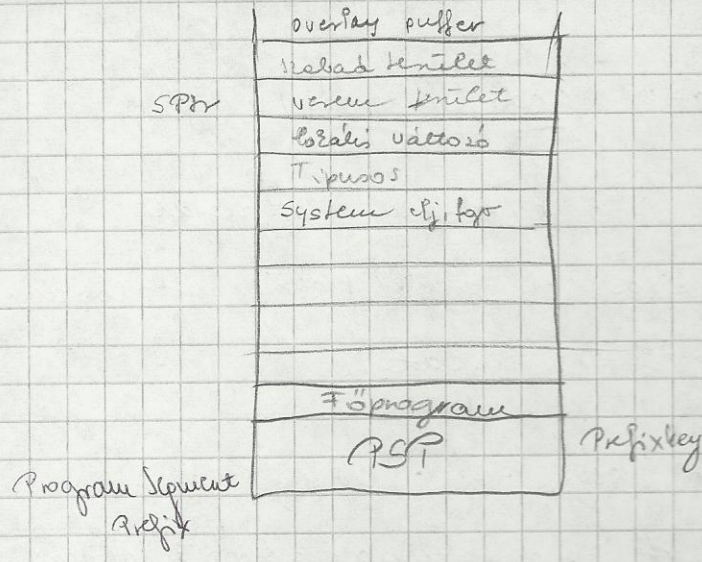 overlay puffer
szabad terület
SPtr
verem terület
lokális változó
Tipusos
System elj, fgv
Főprogram
PSP
Prefixkey
Program Segment
Prefix